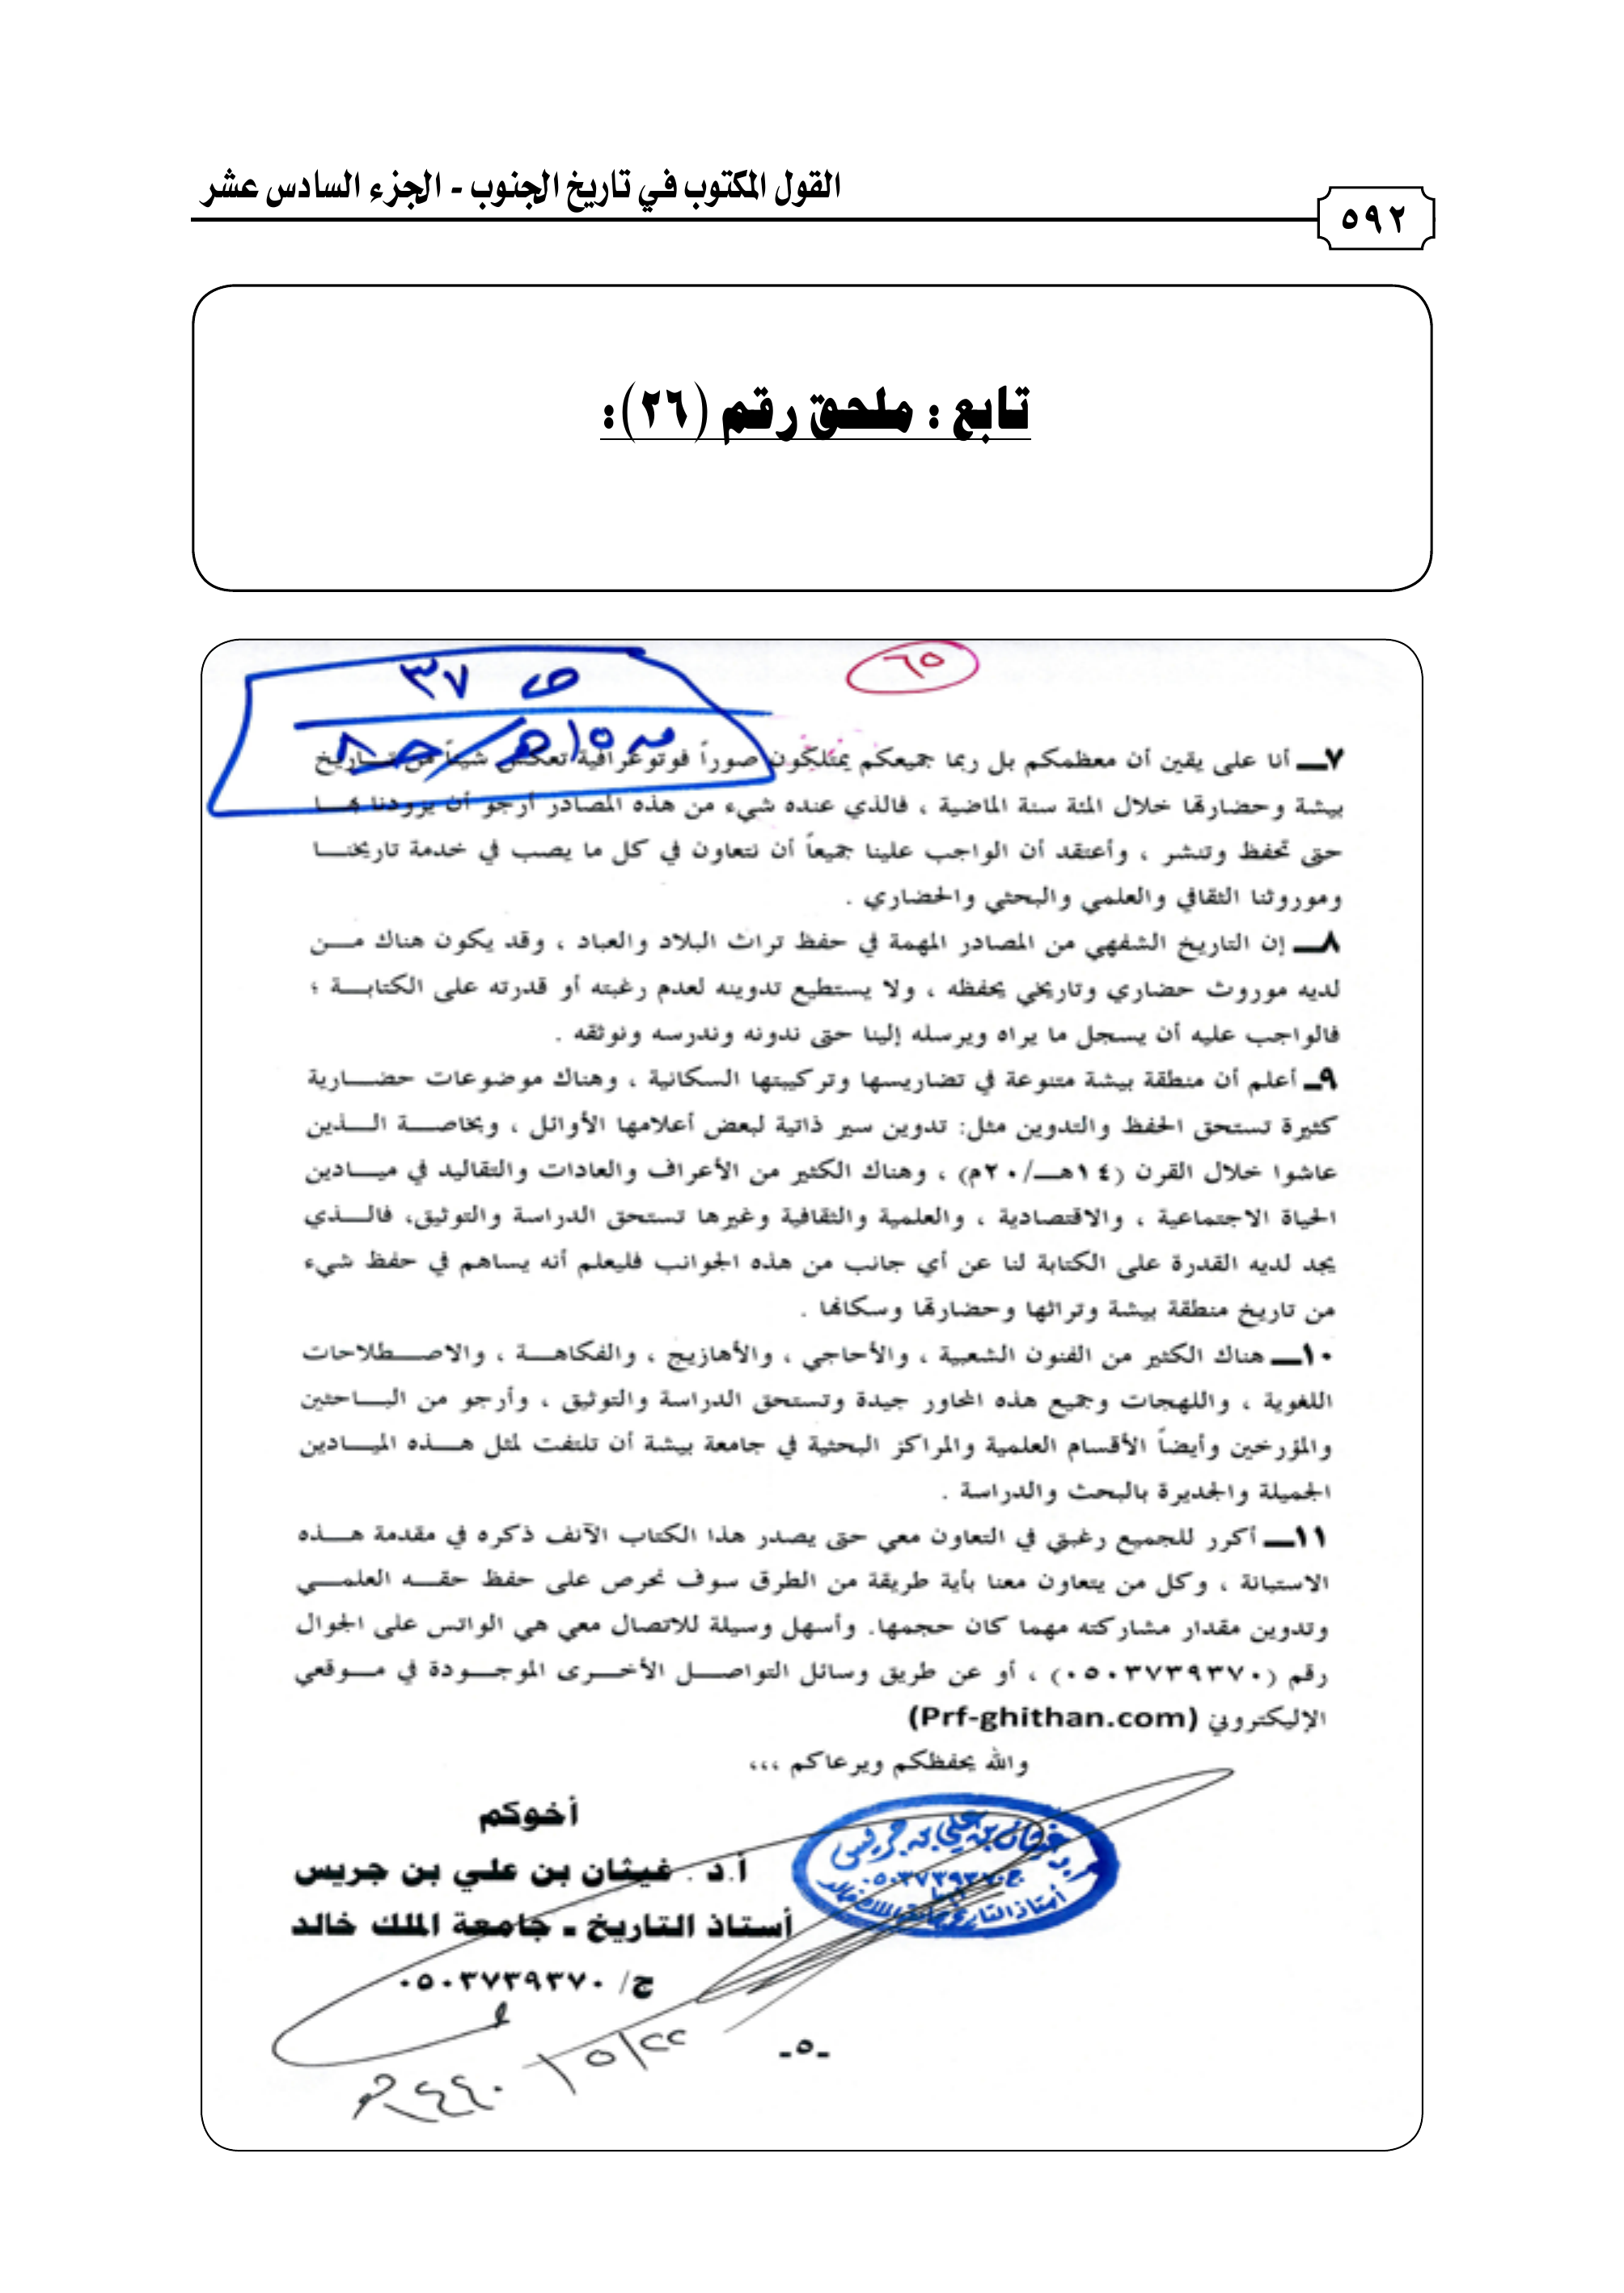 القول المكتوب في تاريخ الجنوب - الجزء السادس عشر
٥٩٢
تابع : ملحق رقم (٢٦):
٦٥
ص ٣٧
٧ـ أنا على يقين أن معظمكم بل ربما جميعكم يمتلكون صوراً فوتوغرافية تعكس شيئاً من تاريخ
بيشة وحضارتها خلال المئة سنة الماضية ، فالذي عنده شيء من هذه المصادر أرجو أن يزودنا بها
حتى تحفظ وتنشر ، وأعتقد أن الواجب علينا جميعاً أن نتعاون في كل ما يصب في خدمة تاريخنا
وموروثنا الثقافي والعلمي والبحثي والحضاري .
٨ـ إن التاريخ الشفهي من المصادر المهمة في حفظ تراث البلاد والعباد ، وقد يكون هناك من
لديه موروث حضاري وتاريخي يحفظه ، ولا يستطيع تدوينه لعدم رغبته أو قدرته على الكتابة ؛
فالواجب عليه أن يسجل ما يراه ويرسله إلينا حتى ندونه وندرسه ونوثقه .
٩ـ أعلم أن منطقة بيشة متنوعة في تضاريسها وتركيبتها السكانية ، وهناك موضوعات حضارية
كثيرة تستحق الحفظ والتدوين مثل: تدوين سير ذاتية لبعض أعلامها الأوائل ، وبخاصة الذين
عاشوا خلال القرن (١٤هـ/٢٠م) ، وهناك الكثير من الأعراف والعادات والتقاليد في ميادين
الحياة الاجتماعية ، والاقتصادية ، والعلمية والثقافية وغيرها تستحق الدراسة والتوثيق، فالذي
يجد لديه القدرة على الكتابة لنا عن أي جانب من هذه الجوانب فليعلم أنه يساهم في حفظ شيء
من تاريخ منطقة بيشة وتراثها وحضارتها وسكانها .
١٠ـ هناك الكثير من الفنون الشعبية ، والأحاجي ، والأهازيج ، والفكاهة ، والاصطلاحات
اللغوية ، واللهجات وجميع هذه المحاور جيدة وتستحق الدراسة والتوثيق ، وأرجو من الباحثين
والمؤرخين وأيضاً الأقسام العلمية والمراكز البحثية في جامعة بيشة أن تلتفت لمثل هذه الميادين
الجميلة والجديرة بالبحث والدراسة .
١١ـ أكرر للجميع رغبتي في التعاون معي حتى يصدر هذا الكتاب الآنف ذكره في مقدمة هذه
الاستبانة ، وكل من يتعاون معنا بأية طريقة من الطرق سوف نحرص على حفظ حقه العلمي
وتدوين مقدار مشاركته مهما كان حجمها. وأسهل وسيلة للاتصال معي هي الواتس على الجوال
رقم (٠٥٠٣٧٣٩٣٧٠) ، أو عن طريق وسائل التواصل الأخرى الموجودة في موقعي
الإليكتروني (Prf-ghithan.com)
والله يحفظكم ويرعاكم ،،،
أخوكم
أ.د . غيثان بن علي بن جريس
أستاذ التاريخ ـ جامعة الملك خالد
ج/ ٠٥٠٣٧٣٩٣٧٠
أ.د. غيثان بن علي بن جريس
ج: ٠٥٠٣٧٣٩٣٧٠
أستاذ التاريخ بجامعة الملك خالد
٢٢/٥/
١٤٤٠هـ
-٥-